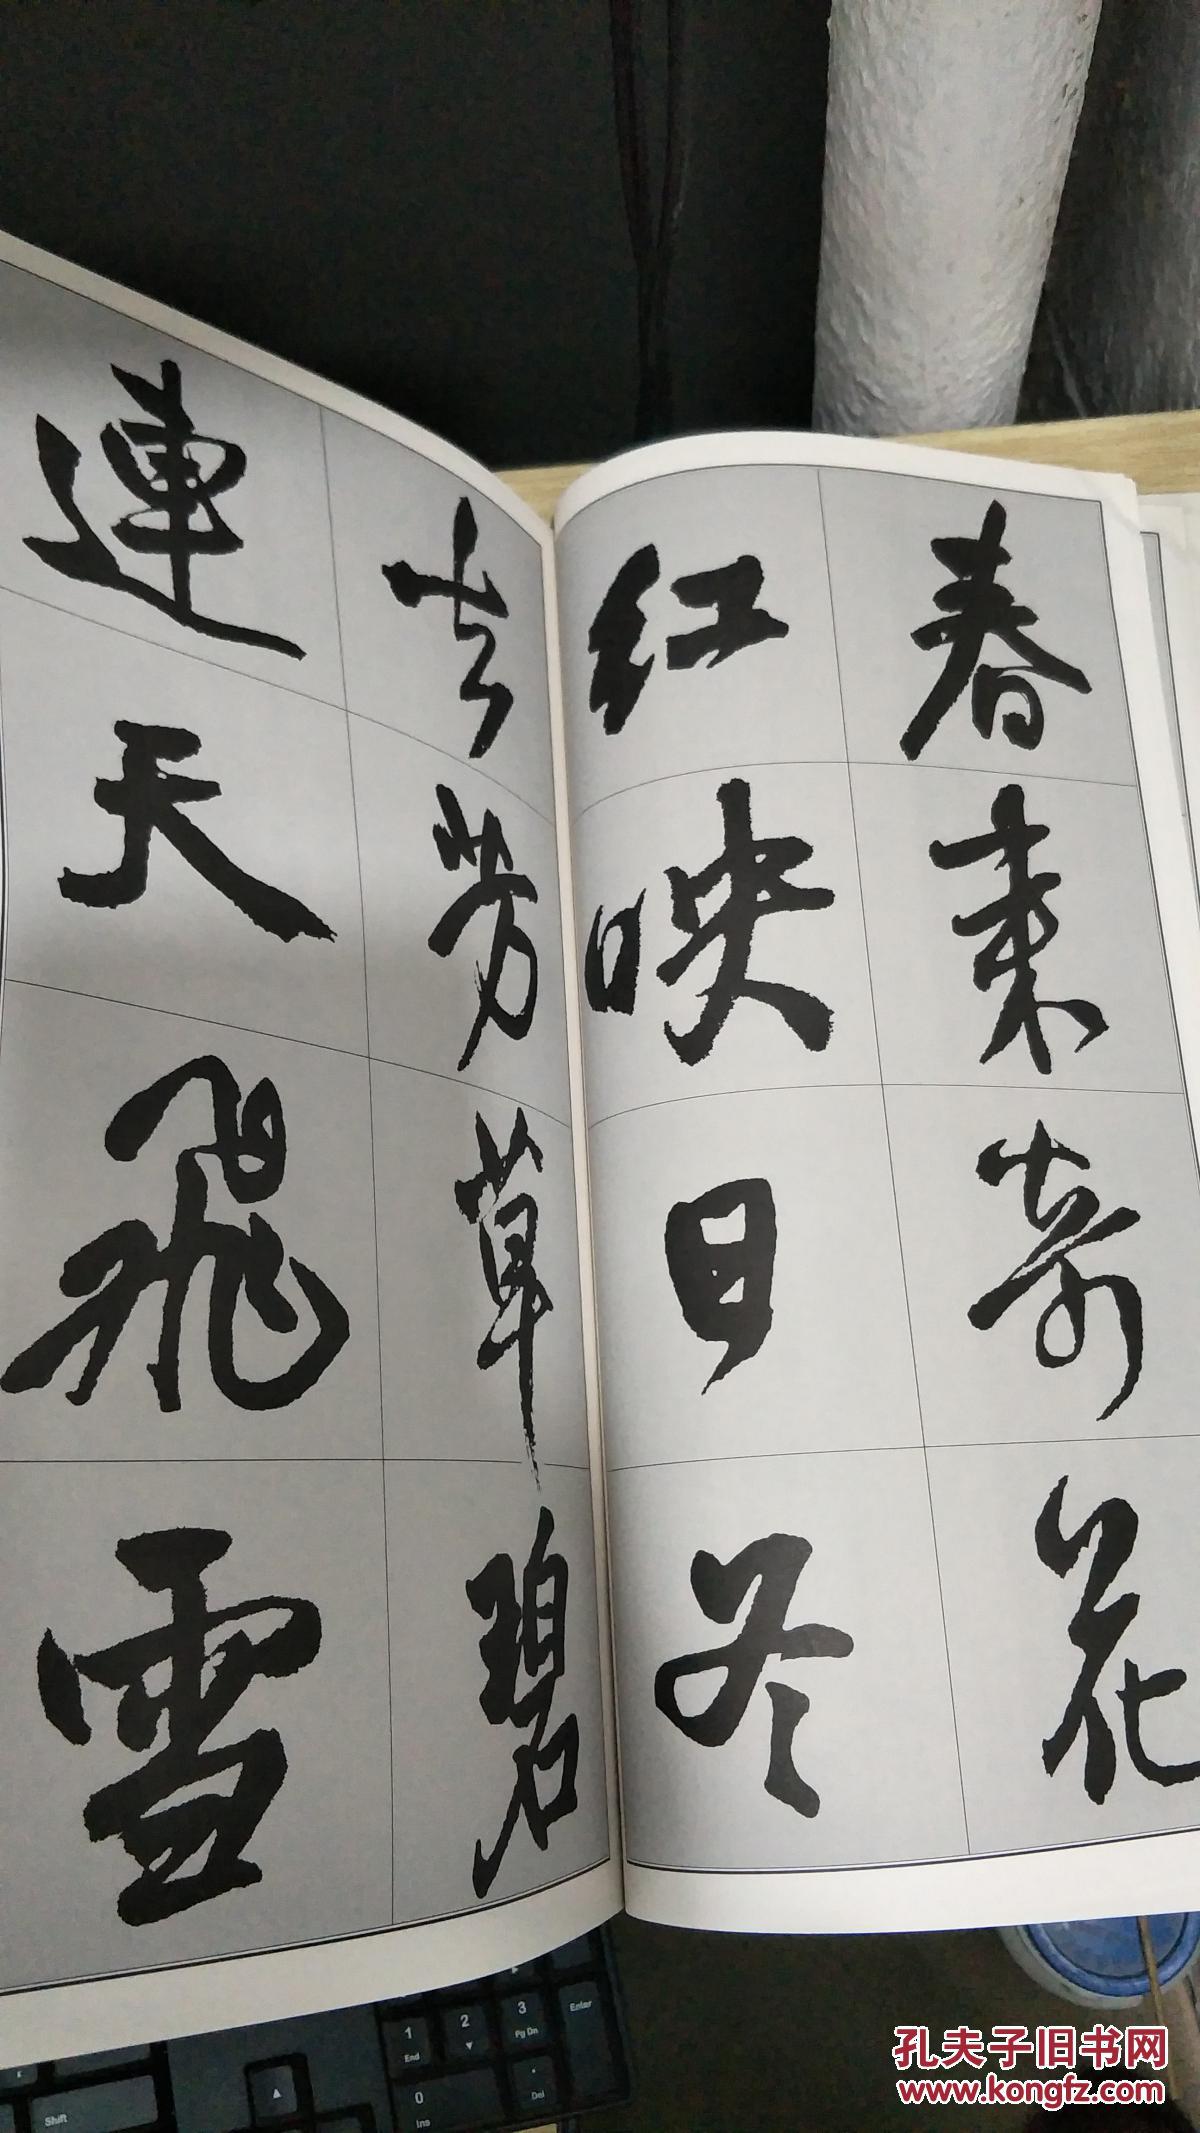 春来奇花
红映日冬
去芳草碧
連天飛雪
1
End
2
3
Pg Dn
Enter
0
Ins
.
Del
Shift
孔夫子旧书网
www.kongfz.com